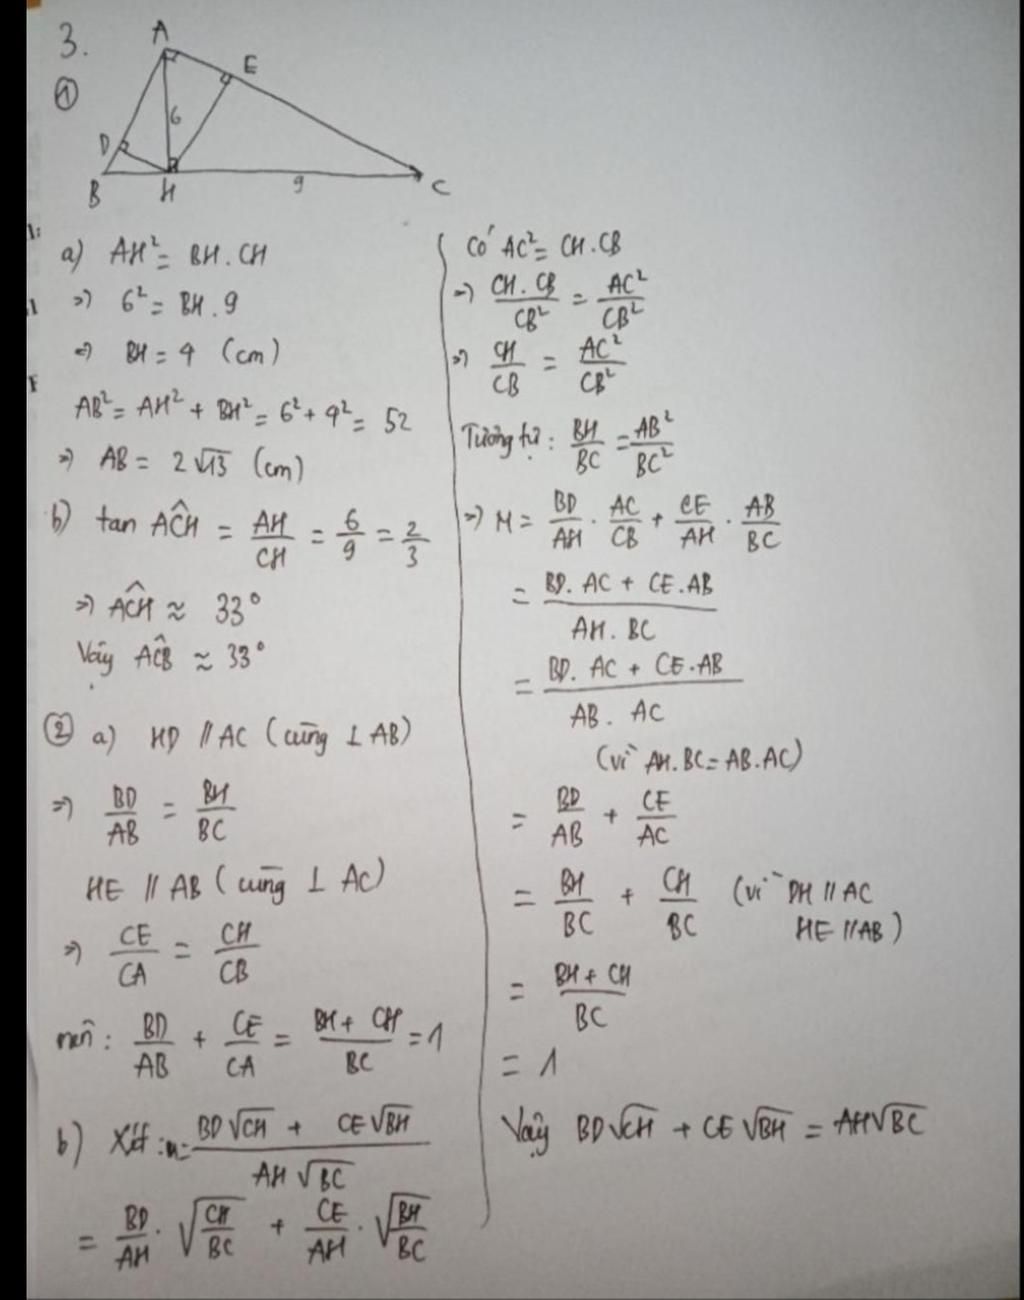 3.
①
A
E
6
D
B
H
9
C
a) AH² = BH . CH
=> 6² = BH . 9
=> BH = 4 (cm)
AB² = AH² + BH² = 6² + 4² = 52
=> AB = 2√13 (cm)
b) tan ACH^ = AH/CH = 6/9 = 2/3
=> ACH^ ≈ 33°
Vậy ACB^ ≈ 33°
② a) HD // AC (cùng ⊥ AB)
=> BD/AB = BH/BC
HE // AB (cùng ⊥ AC)
=> CE/CA = CH/CB
nên : BD/AB + CE/CA = (BH + CH)/BC = 1
b) Xét : M = (BD√CH + CE√BH)/(AH√BC)
= BD/AH . √(CH/BC) + CE/AH . √(BH/BC)
Có AC² = CH . CB
=> (CH . CB)/CB² = AC²/CB²
=> CH/CB = AC²/CB²
Tương tự : BH/BC = AB²/BC²
=> M = BD/AH . AC/CB + CE/AH . AB/BC
= (BD . AC + CE . AB)/(AH . BC)
= (BD . AC + CE . AB)/(AB . AC)
(vì AH . BC = AB . AC)
= BD/AB + CE/AC
= BH/BC + CH/BC (vì DH // AC
HE // AB)
= (BH + CH)/BC
= 1
Vậy BD√CH + CE√BH = AH√BC